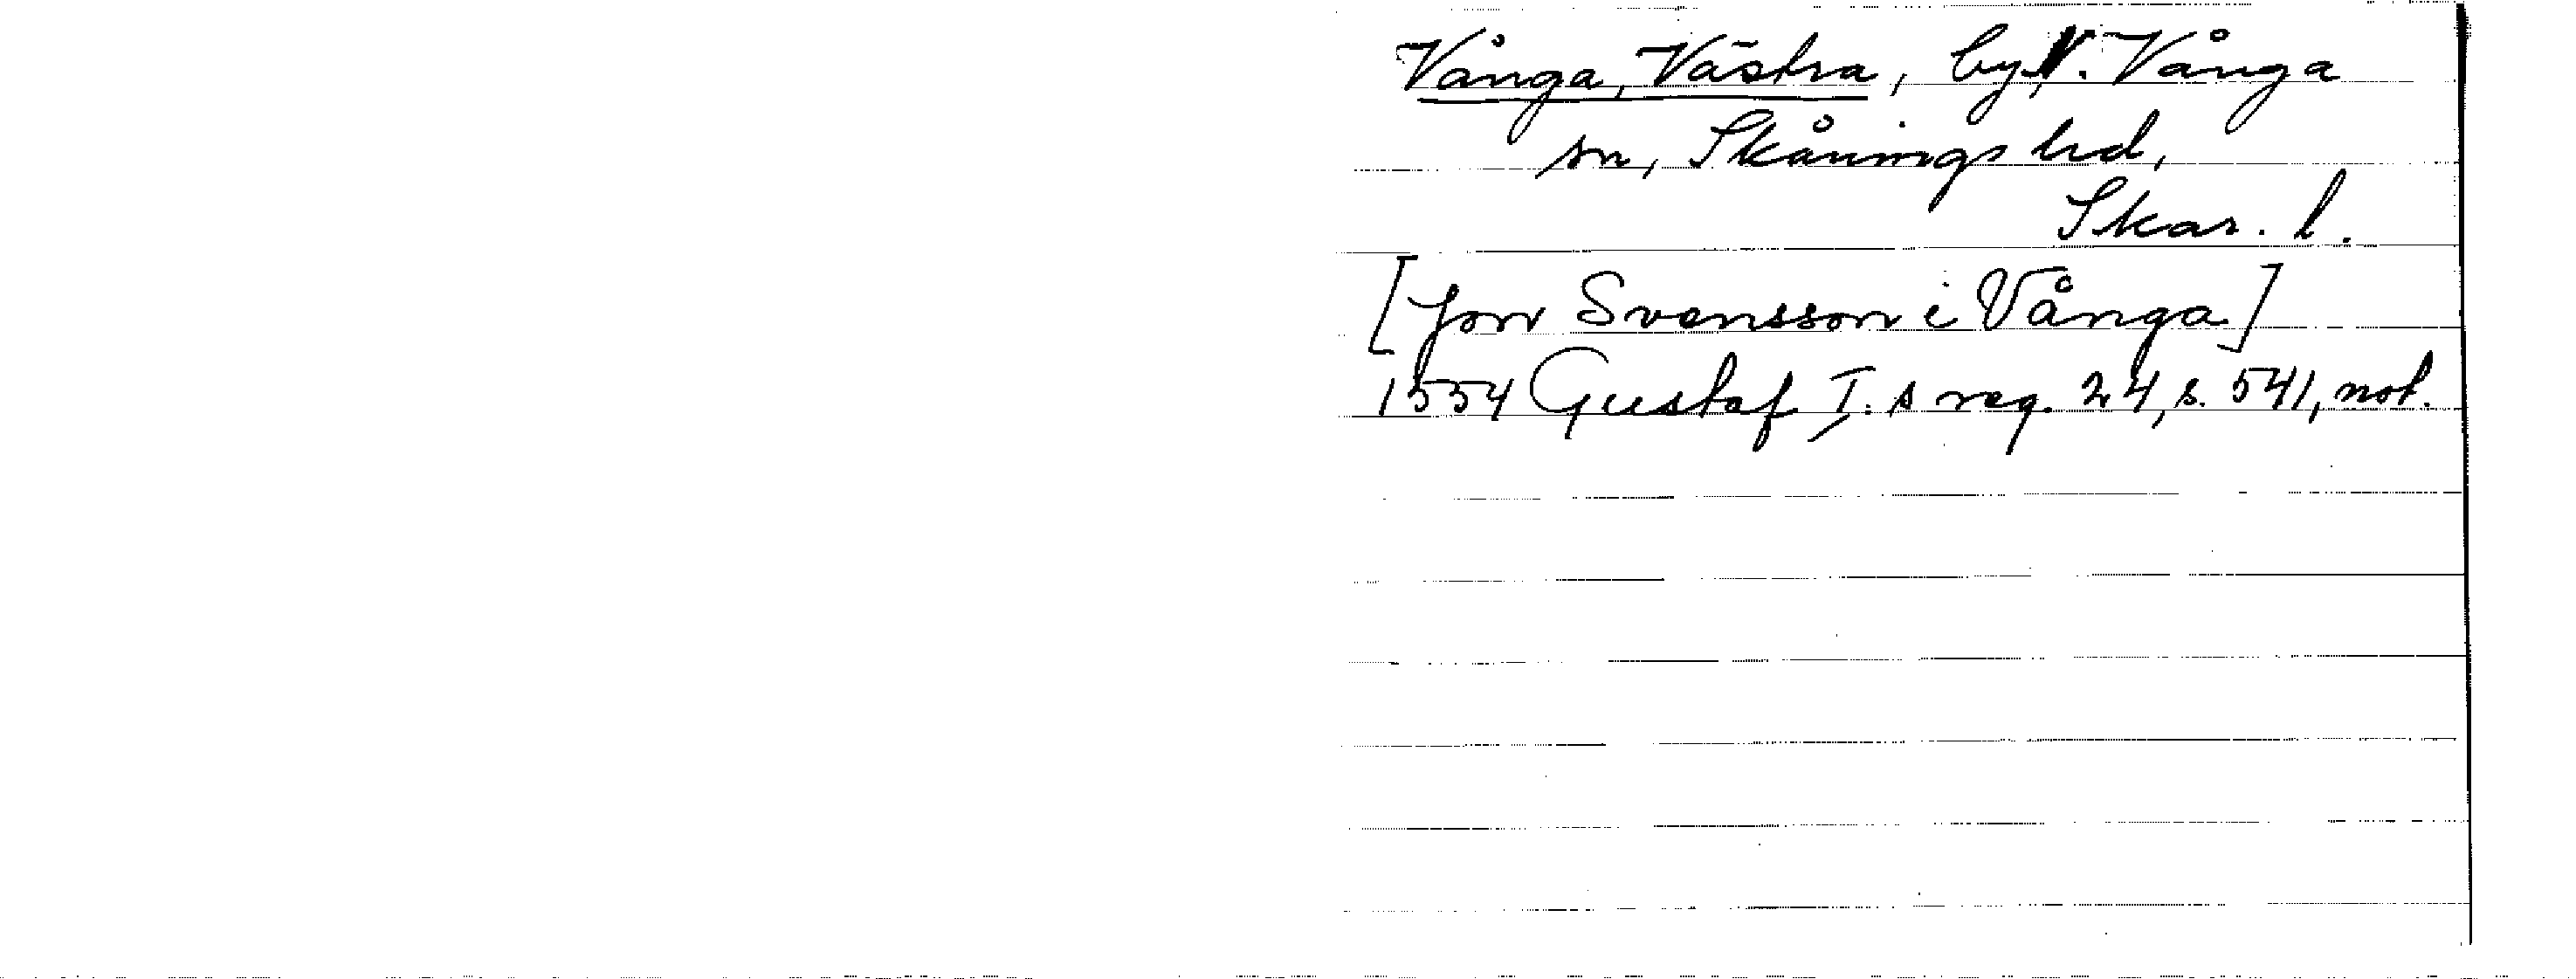 Vånga, Västra, by, N. Vånga
sn, Skånings hd,
Skar. l.
[Jon Svensson i Vånga]
1554 Gustaf I:s reg. 24, s. 541, not.